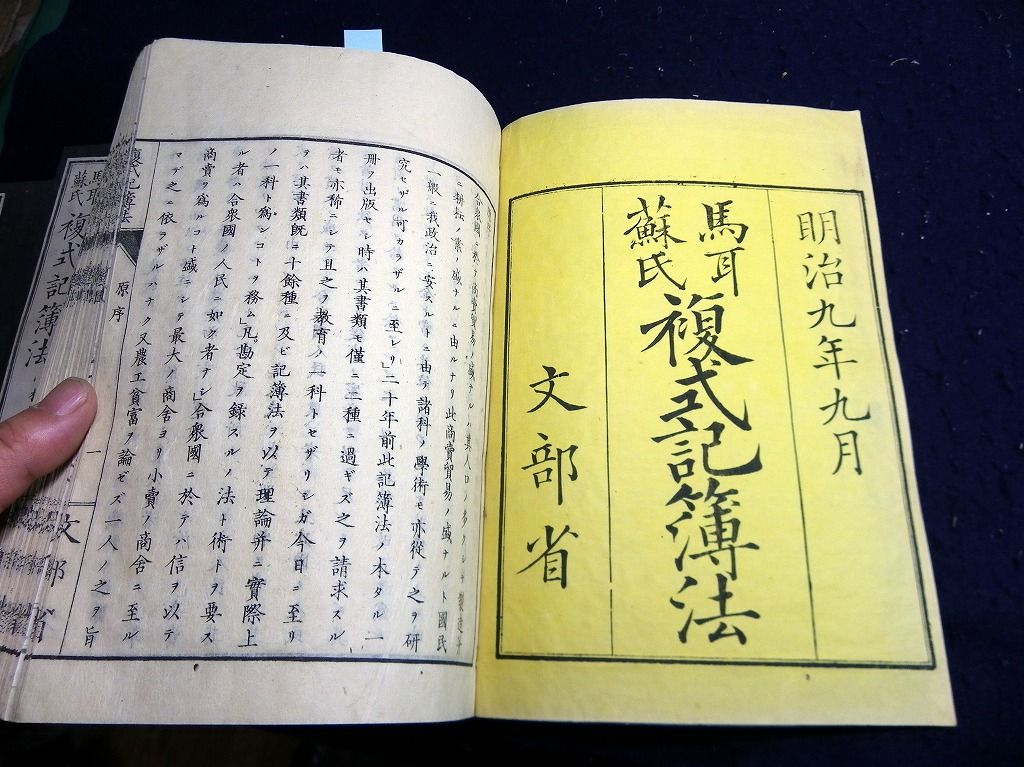 明治九年九月
馬耳
蘇氏
複式記簿法
文部省
ニ耕耘ノ業ノ盛ナルニ由ルナリ此商賣貿易ノ盛ナルト國民
一般ニ我政治ニ安スルトニ由テ諸科ノ學術モ亦從テ之ヲ研
究セザル可カラザルニ至レリ」二十年前此記簿法ノ本タル一
册ヲ出版セシ時ハ其書類モ僅ニ二三種ニ過ギズ之ヲ請求スル
者モ亦稀ニシテ且之ヲ教育ノ一科トセザリシガ今日ニ至リ
テハ其書類既ニ十餘種ニ及ビ記簿法ヲ以テ理論并ニ實際上
ノ一科ト爲ンコトヲ務ム」凡勘定ヲ録スルノ法ト術トヲ要ス
ル者ハ合衆國ノ人民ニ如ク者ナシ」合衆國ニ於テハ信ヲ以テ
商賣ヲ爲ルコト盛ニシテ最大ノ商舎ヨリ小賣ノ商舎ニ至ル
マデ之ニ依ラザルハナク又農工貧富ヲ論ゼズ一人ノ之ヲ旨
原序
一
馬耳
蘇氏
複式記簿法
文部省